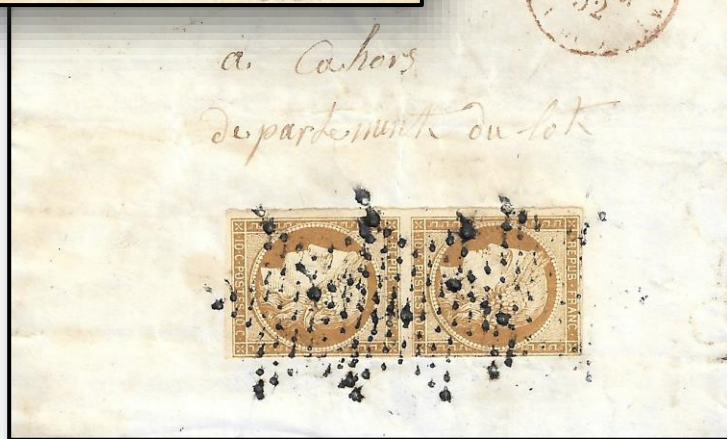 52
a Cahors
departement du lot
10·C·POSTES·10·C
10·C·POSTES·10·C
REPUB·FRANC